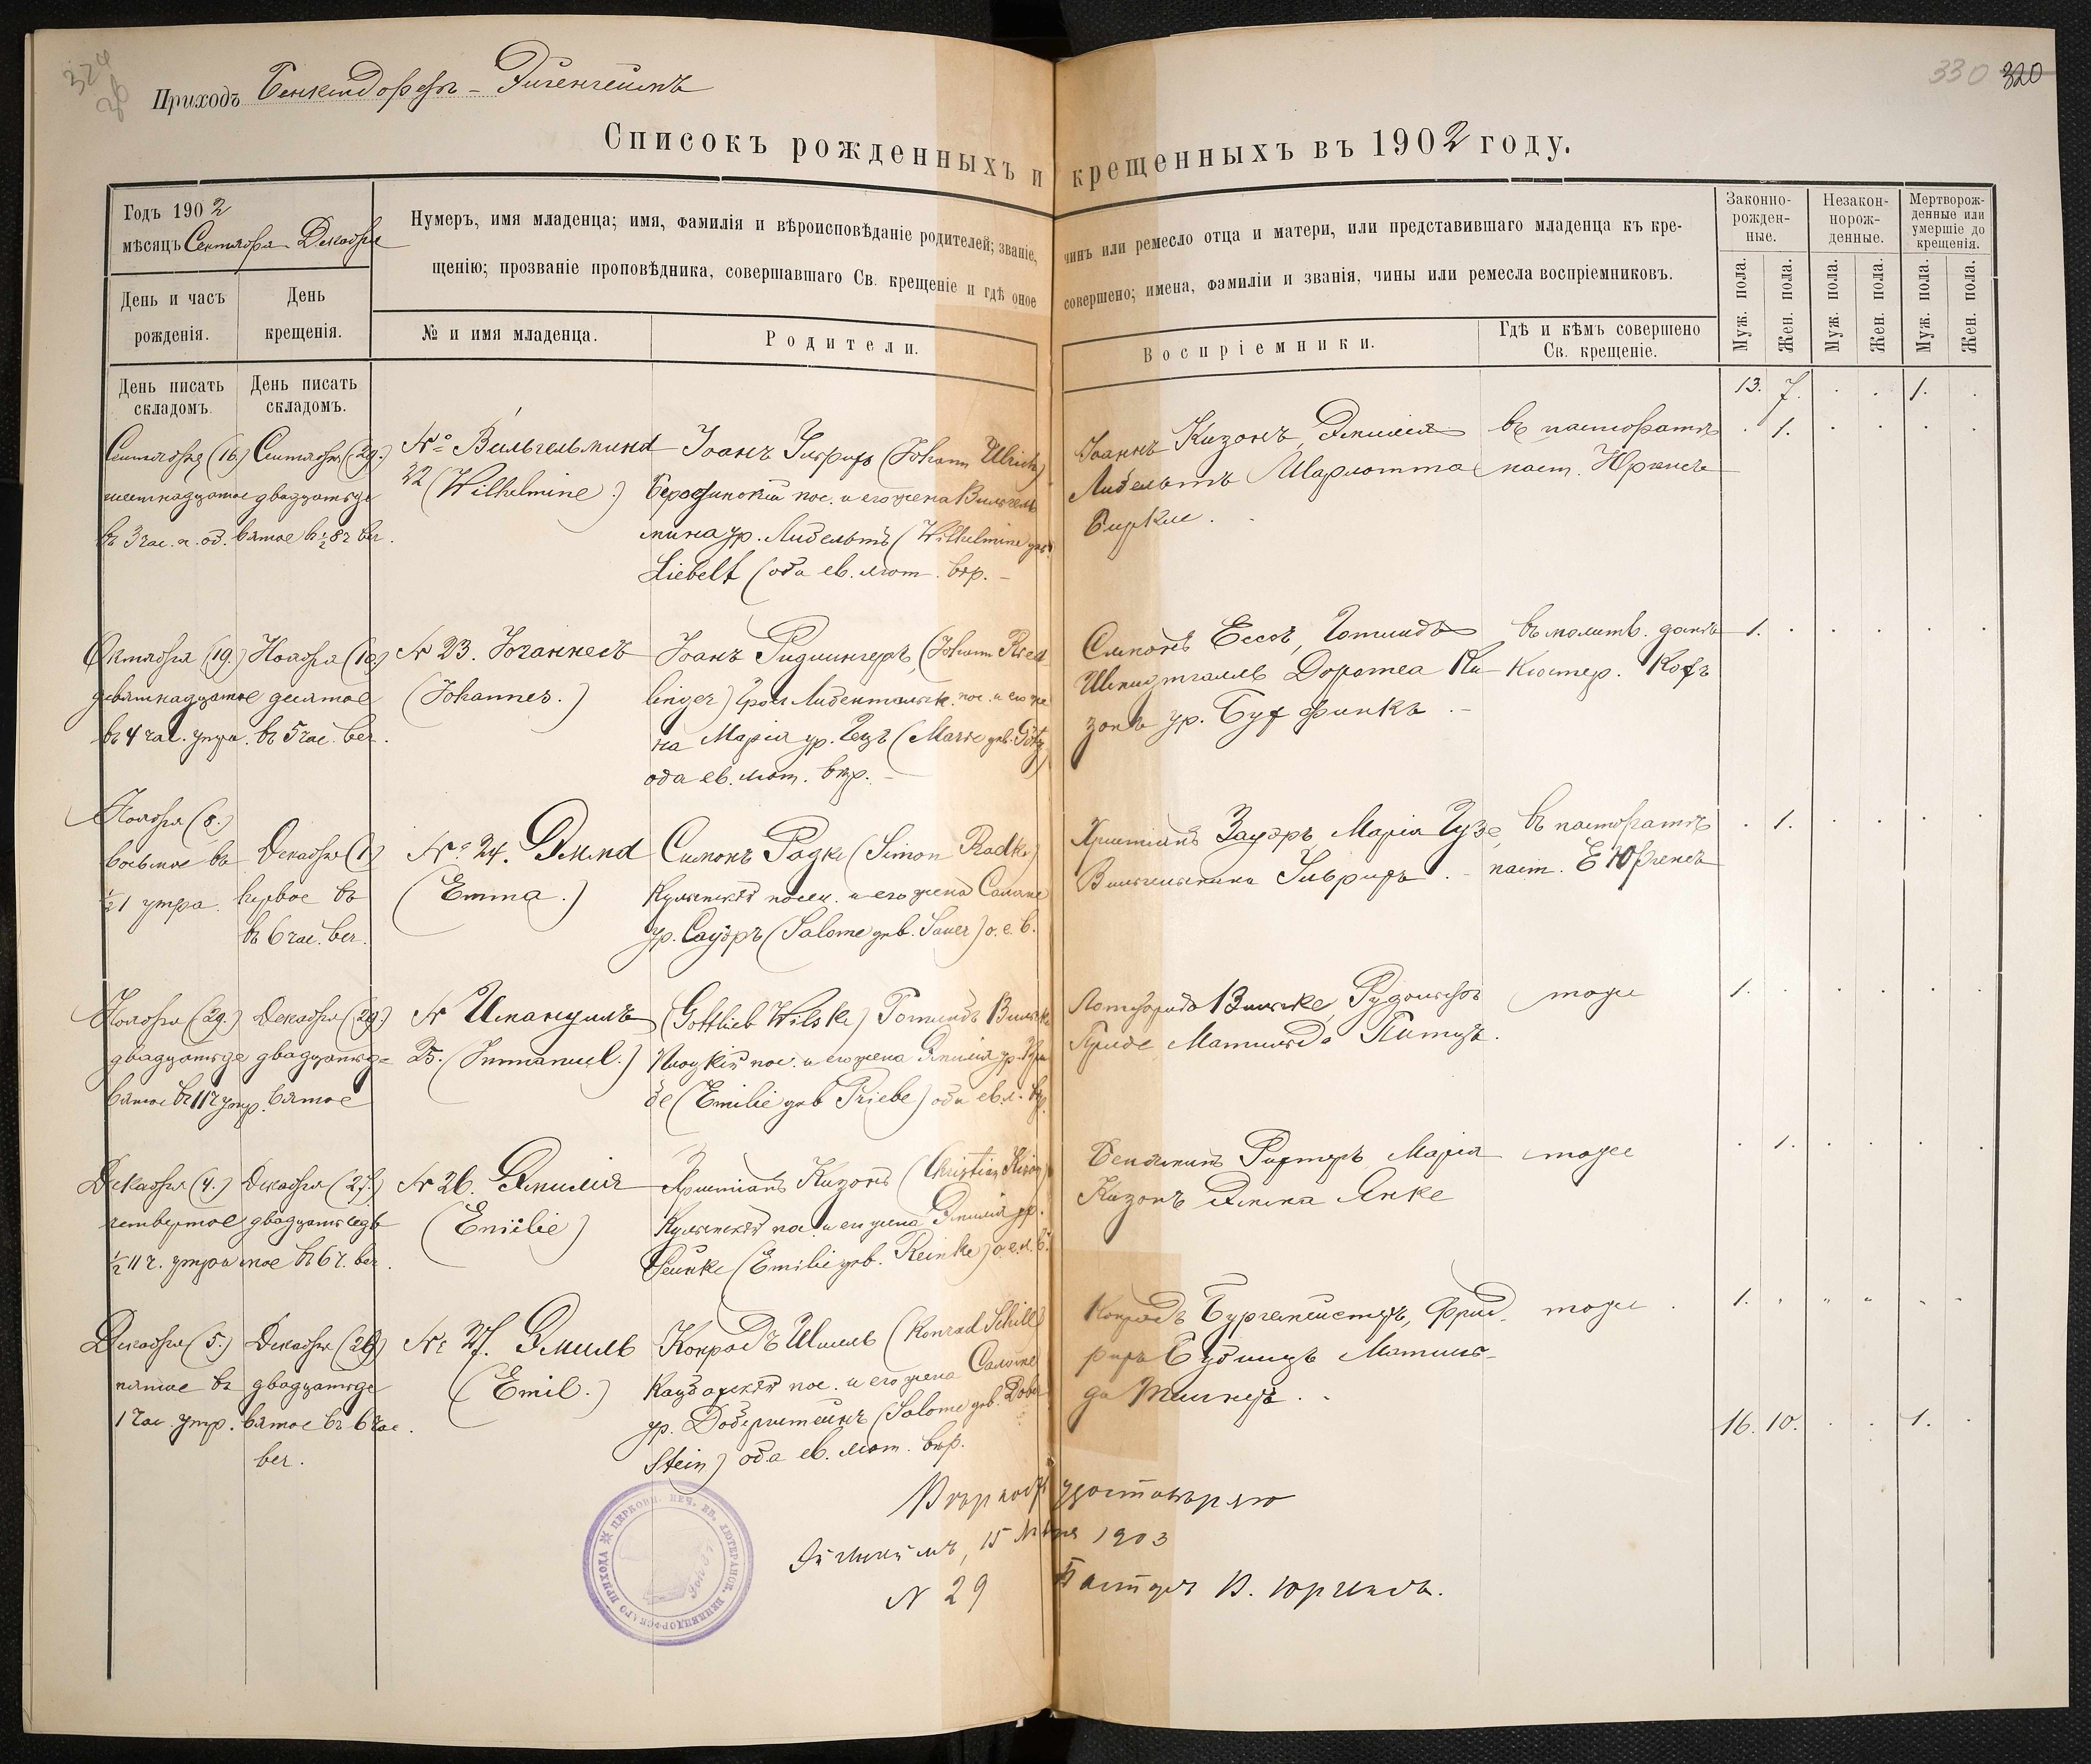 324
26
330 320
Приходъ Бенкендорфъ - Эигенгеимъ
Списокъ рожденныхъ и крещенныхъ въ 1902 году.
Годъ 1902
мѣсяцъ Сентября - Декабря
День и часъ рожденія.
День крещенія.
Нумеръ, имя младенца; имя, фамилія и вѣроисповѣданіе родителей; званіе, чинъ или ремесло отца и матери, или представившаго младенца къ кре-
щенію; прозваніе проповѣдника, совершавшаго Св. крещеніе и гдѣ оное совершено; имена, фамиліи и званія, чины или ремесла воспріемниковъ.
№ и имя младенца.
Родители.
Воспріемники.
Гдѣ и кѣмъ совершено
Св. крещеніе.
Законно-
рожден-
ные.
Незакон-
норож-
денные.
Мертворож-
денные или
умершіе до
крещенія.
Муж. пола.
Жен. пола.
Муж. пола.
Жен. пола.
Муж. пола.
Жен. пола.
День писать
складомъ.
День писать
складомъ.
13. 7. . . 1. .
Сентября (16.)
шестнадцатое
въ 3 час. п. об.
Сентября (29.)
двадцатьде
вятое в ½ 8 ч веч.
№ Вильгельмина
22 (Wilhelmine.)
Іоанъ Ульрихъ (Johann Ulrich)
Березинскій пос. и его жена Вильгель
мина ур. Либельтъ (Wilhelmine
Liebelt (оба ев. лют. вѣр. -
Іоаннъ Кизонъ, Эмилія
Либельтъ Шарлотта
Биркле.
въ пасторатѣ
паст. Юргенсъ
. 1. . . . .
Октября (19.)
девятнадцатое
въ 4 час. утра.
Ноября (10.)
десятое
въ 5 час. веч.
№ 23. Іоганнесъ
(Johannes.)
Іоанъ Ридлингеръ, (Johann Ried
linger) Грос Либентальск. пос. и его же
на Марія ур. Гецъ (Marie урб. Götz)
оба ев. лют. вѣр. -
Симонъ Ессъ, Готлибъ
Доротеа Ки-
зонъ ур. Бухфинкъ . -
въ молитв. домѣ
Кистер. Кохъ
1. . . . . .
Ноября (8.)
восьмое въ
½ 1 утра.
Декабря (1.)
первое въ
въ 6 час. веч.
№ 24. Эмма
(Emma.)
Симонъ Радке (Simon Radke)
Кульмскій посел. и его жена Саломе
ур. Сауэръ (Salome урб. Sauer) о. е. в.
Христіанъ Зауэръ, Марія Гузе,
Вильгельмина Ульрихъ. -
въ пасторатѣ
паст. Е Юргенсъ
. 1. . . . .
Ноября (29.)
двадцатьде
вятое въ 11 ч утр.
Декабря (29.)
двадцатьде-
вятое
№ Иммануилъ
25. (Immanuel.)
(Gottlieb Wilske) Готлибъ Вильске
Плоцкій пос. и его жена Эмилія ур. При
бе (Emilie урб Priebe) оба ев. л. вѣр.
Готфридъ Вильске, Рудольфъ
Прибе Матильда
тоже
1. . . . . .
Декабря (4.)
четвертое
½ 11 ч. утра
Декабря (27.)
двадцать седь
мое въ 6 ч. веч.
№ 26. Эмилія
(Emilie)
Христіанъ Кизонъ (Christian Kison)
Кульмскій пос. и его жена Эмилія ур.
Рейнке (Emilie урб. Reinke) о. е. л. в.
Беніаминъ Рихтеръ, Марія
Кизонъ Эмма Янке
тоже
. 1. . . . .
Декабря (5.)
пятое въ
1 час. утр.
Декабря (29)
двадцатьде
вятое въ 6 час.
веч.
№ 27. Эмиль
(Emil.)
Конрадъ Шилль (Konrad Schill)
пос. и его жена Саломе
ур. Доберштейнъ (Salome урб. Dober
stein) оба ев. лют. вѣр.
Конрадъ Бургемейстеръ, Фрид-
рихъ Матиль-
да
тоже .
1. . " " . .
16. 10. . . 1. .
Вѣрность удостовѣряю
Эйгенгеймъ, 15 1903
№ 29 Пасторъ Юргенсъ.